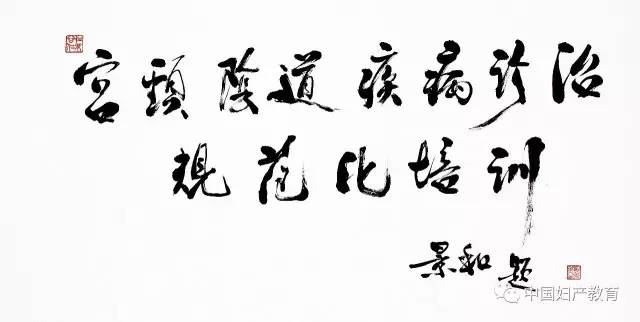 宫頸陰道疾病诊治
規范化培训
景和题
中国妇产教育